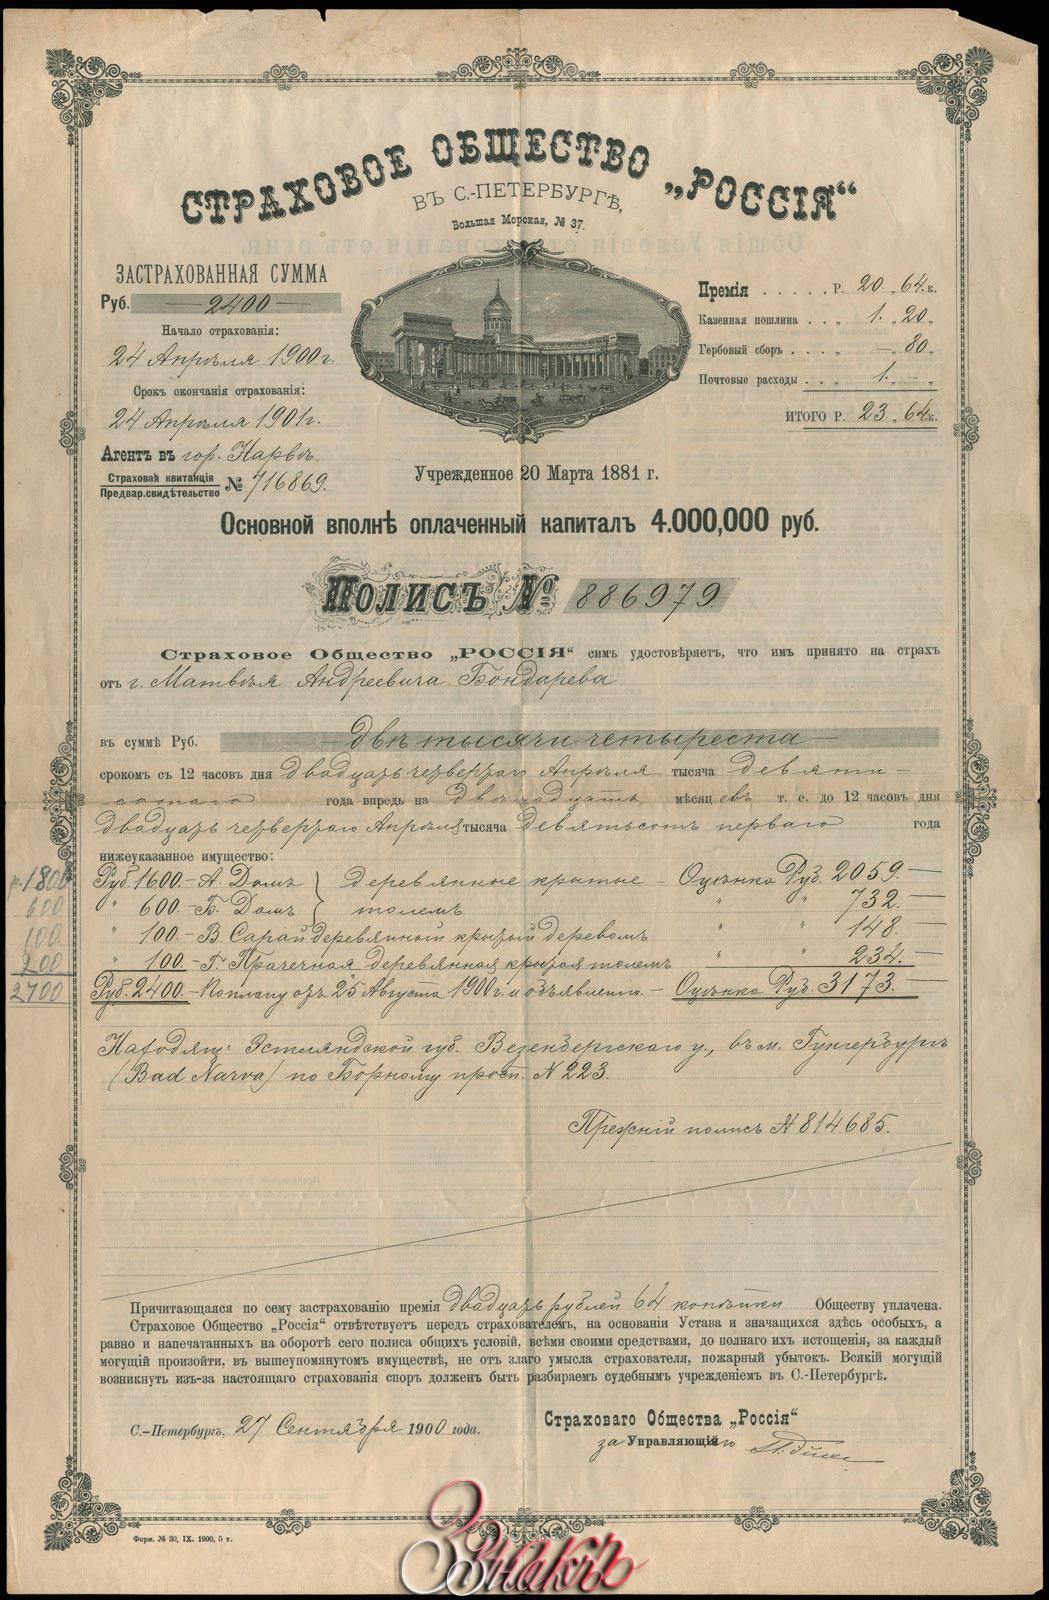 СТРАХОВОЕ ОБЩЕСТВО „РОССІЯ“
ВЪ С.-ПЕТЕРБУРГѢ,
Большая Морская, № 37.
ЗАСТРАХОВАННАЯ СУММА
Руб. — 2400 —
Начало страхованія:
24 Апрѣля 1900 г.
Срокъ окончанія страхованія:
24 Апрѣля 1901 г.
Агентъ въ гор. Нарвѣ.
Страховая квитанція
Предвар. свидѣтельство № 716869.
Премія ..... Р. 20 „ 64 к.
Казенная пошлина .. „ 1 „ 20 „
Гербовый сборъ ... „ — „ 80 „
Почтовые расходы .. „ 1 „ — „
ИТОГО Р. 23 „ 64 к.
Учрежденное 20 Марта 1881 г.
Основной вполнѣ оплаченный капиталъ 4.000,000 руб.
Полисъ № 886979.
Страховое Общество „РОССІЯ“ симъ удостовѣряетъ, что имъ принято на страхъ
отъ г. Матвѣя Андреевича Бондарева
въ суммѣ Руб. — двѣ тысячи четыреста —
срокомъ съ 12 часовъ дня двадцать четвертаго Апрѣля тысяча девяти-
сотаго года впредь на двѣнадцать мѣсяцевъ т. е. до 12 часовъ дня
двадцать четвертаго Апрѣля тысяча девятьсотъ перваго года
нижеуказанное имущество:
р. 1800 Руб. 1600. — А. Домъ } деревянные крытые — Оцѣнка Руб. 2059. —
600 " 600. — Б. Домъ } толемъ " " 732. —
100 " 100. — В. Сарай деревянный крытый деревомъ " " 148. —
200 " 100. — Г. Прачечная деревянная крытая толемъ " " 234. —
2700 Руб. 2400. — По плану отъ 25 Августа 1900 г. и объявленію. — Оцѣнка Руб. 3173. —
Находящ: Эстляндской губ. Везенбергскаго у., въ м. Гунгербургъ
(Bad Narva) по Борному просп. N 223.
Прежній полисъ N 814685.
Причитающаяся по сему застрахованію премія двадцать рублей 64 копѣйки Обществу уплачена.
Страховое Общество „Россія“ отвѣтствуетъ передъ страхователемъ, на основаніи Устава и значащихся здѣсь особыхъ, а
равно и напечатанныхъ на оборотѣ сего полиса общихъ условій, всѣми своими средствами, до полнаго ихъ истощенія, за каждый
могущій произойти, въ вышеупомянутомъ имуществѣ, не отъ злаго умысла страхователя, пожарный убытокъ. Всякій могущій
возникнуть изъ-за настоящаго страхованія споръ долженъ быть разбираемъ судебнымъ учрежденіемъ въ С.-Петербургѣ.
С.-Петербургъ, 27 Сентября 1900 года.
Страховаго Общества „Россія“
за Управляющаго
Форм. № 30, IX. 1900, 5 т.
Знакъ